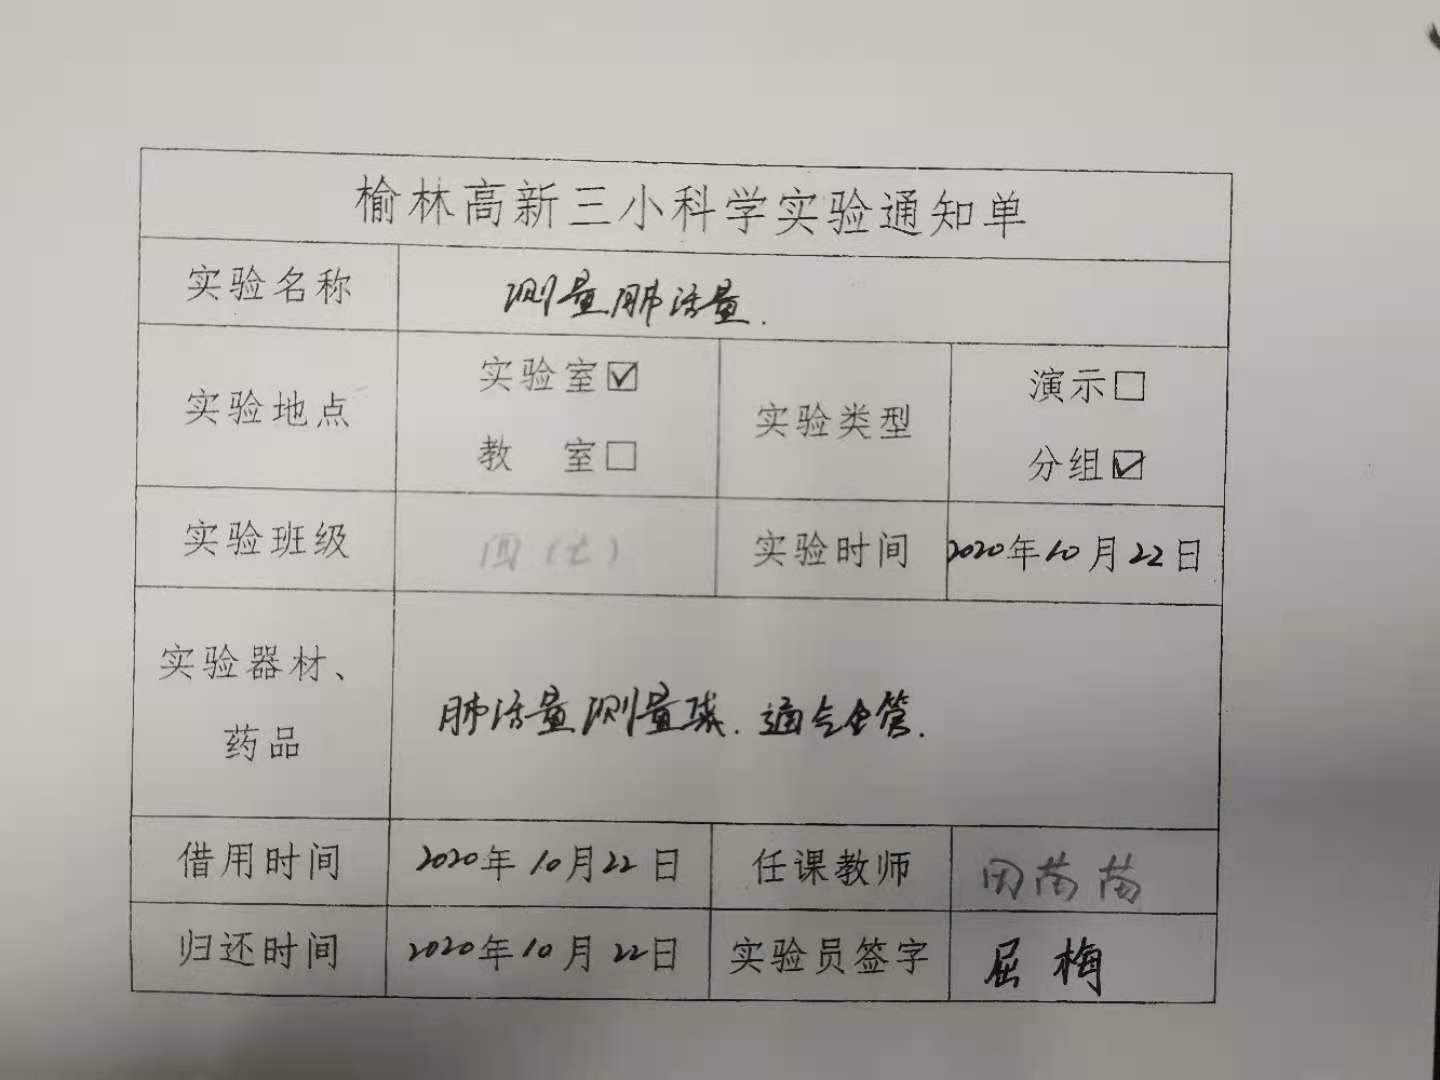 榆林高新三小科学实验通知单
实验名称 测量肺活量.
实验地点 实验室☑ 教 室□ 实验类型 演示□ 分组☑
实验班级 四（七） 实验时间 2020年10月22日
实验器材、药品 肺活量测量袋.通气金管.
借用时间 2020年10月22日 任课教师 田苗苗
归还时间 2020年10月22日 实验员签字 屈梅